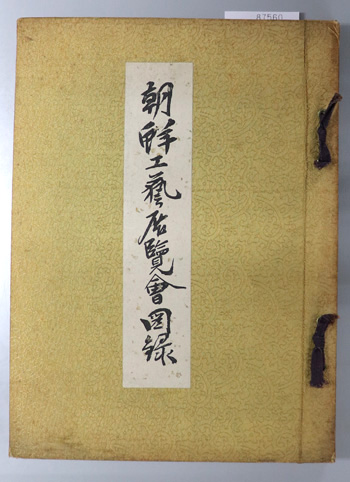 87560
朝鮮工藝展覽會圖録